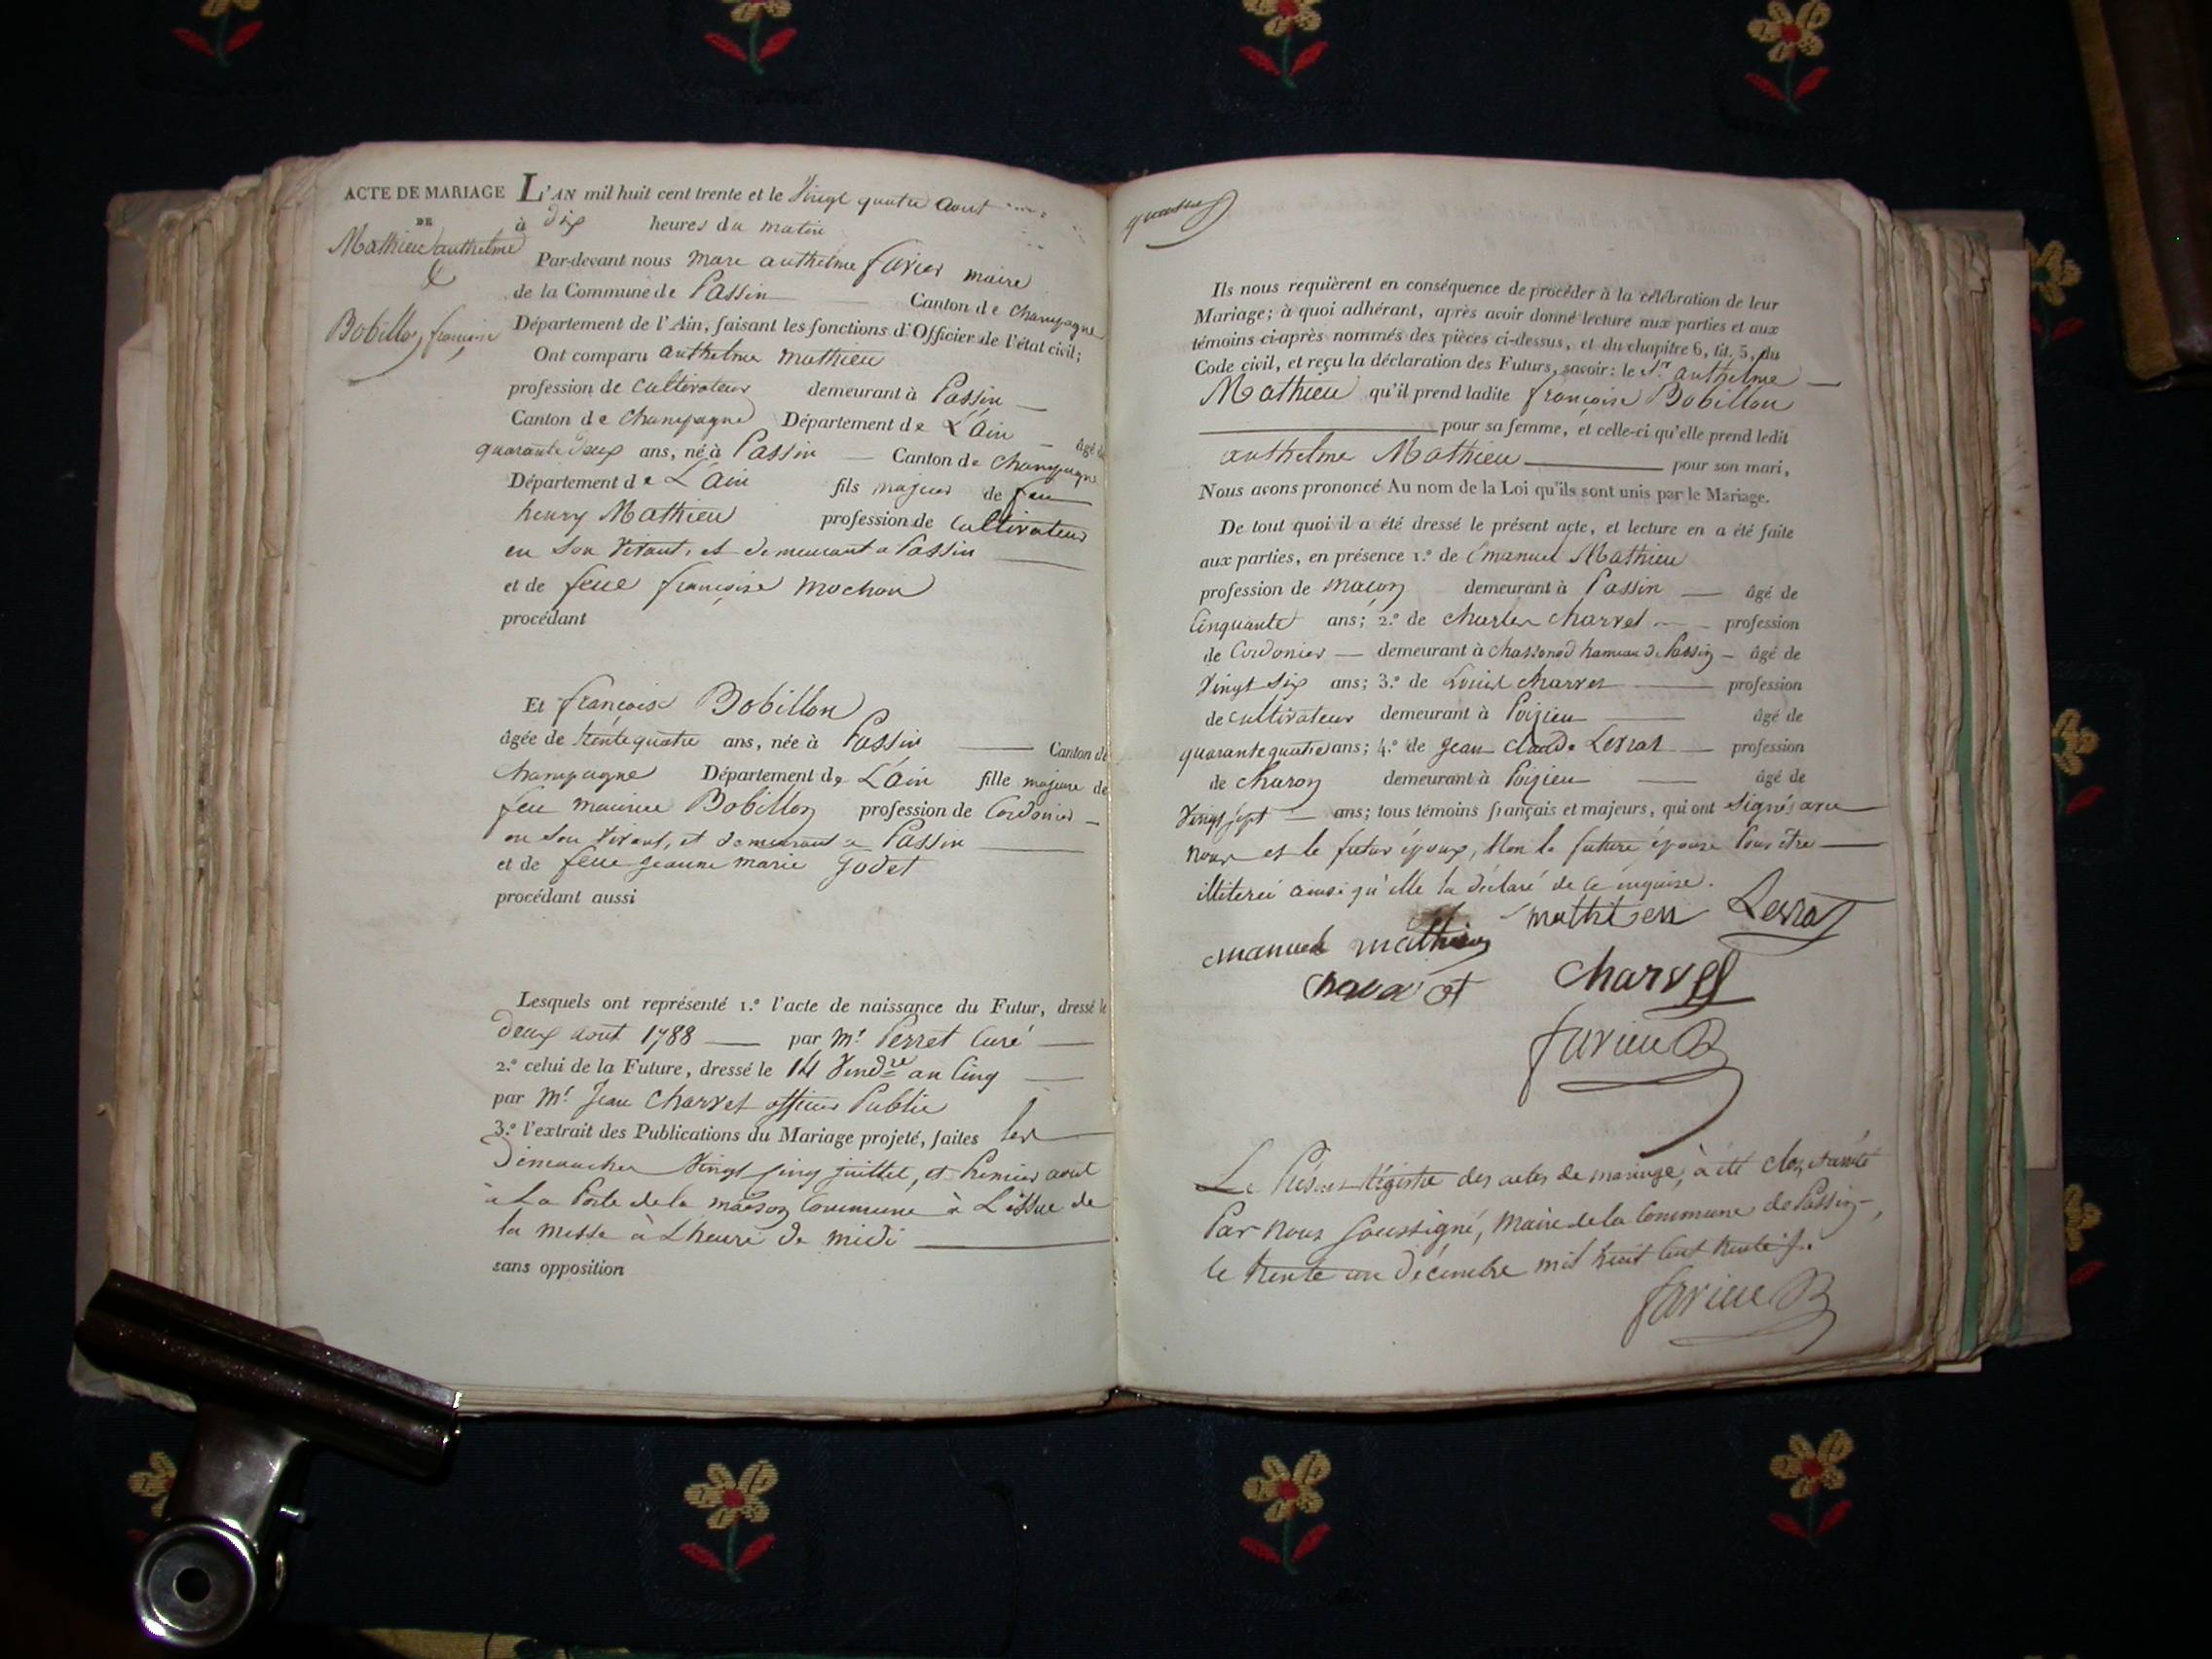 ACTE DE MARIAGE
DE
Mathieu anthelme
&
Bobillon françoise
L'AN mil huit cent trente et le Vingt quatre aout
à dix heures du matin
Par-devant nous marc anthelme favier maire
de la Commune de Passin Canton de Champagne
Département de l'Ain, faisant les fonctions d'Officier de l'état civil;
Ont comparu anthelme mathieu
profession de cultivateur demeurant à Passin
Canton de Champagne Département de L'Ain âgé de
quarante deux ans, né à Passin Canton de Champagne
Département de L'Ain fils majeur de feu
henry Mathieu profession de Cultivateur
en son vivant, et demeurant a Passin
et de feue françoise mochon
procédant
Et françoise Bobillon
âgée de trente quatre ans, née à Passin Canton de
Champagne Département de L'Ain fille majeure de
feu maurice Bobillon profession de Cordonier
en son vivant, et demeurant a Passin
et de feue jeanne marie Godet
procédant aussi
Lesquels ont représenté 1.º l'acte de naissance du Futur, dressé le
deux aout 1788 par Mr. Perret Curé
2.º celui de la Future, dressé le 14 Vendre an Cinq
par Mr. Jean Charvet officier Public
3.º l'extrait des Publications du Mariage projeté, faites les
Dimanches Vingt cinq juillet, et Premier aout
à La Porte de la maison Commune à L'issue de
la messe à L'heure de midi
sans opposition
Ils nous requièrent en conséquence de procéder à la célébration de leur
Mariage; à quoi adhérant, après avoir donné lecture aux parties et aux
témoins ci-après nommés des pièces ci-dessus, et du chapitre 6, tit. 5, du
Code civil, et reçu la déclaration des Futurs, savoir: le Sr. anthelme
Mathieu qu'il prend ladite françoise Bobillon
pour sa femme, et celle-ci qu'elle prend ledit
anthelme Mathieu pour son mari,
Nous avons prononcé Au nom de la Loi qu'ils sont unis par le Mariage.
De tout quoi il a été dressé le présent acte, et lecture en a été faite
aux parties, en présence 1.º de Emanuel Mathieu
profession de maçon demeurant à Passin âgé de
Cinquante ans; 2.º de Charles Charvet profession
de Cordonier demeurant à Chassonod hameau de Passin âgé de
Vingt Six ans; 3.º de Louis Charvet profession
de cultivateur demeurant à Poizieu âgé de
quarante quatre ans; 4.º de Jean Claude Levrat profession
de Charon demeurant à Poizieu âgé de
Vingt sept ans; tous témoins français et majeurs, qui ont signés avec
nous et le futur époux, Non la future épouse Pour être
illiterée ainsi qu'elle l'a déclaré de ce enquise.
mathieu Levrat
manuel mathieu
Charvet
favier
Le Présent Régistre des actes de mariage, à été clos, et arrêté
Par nous soussigné, maire de la Commune de Passin,
le trente un décembre mil huit cent trente.
favier